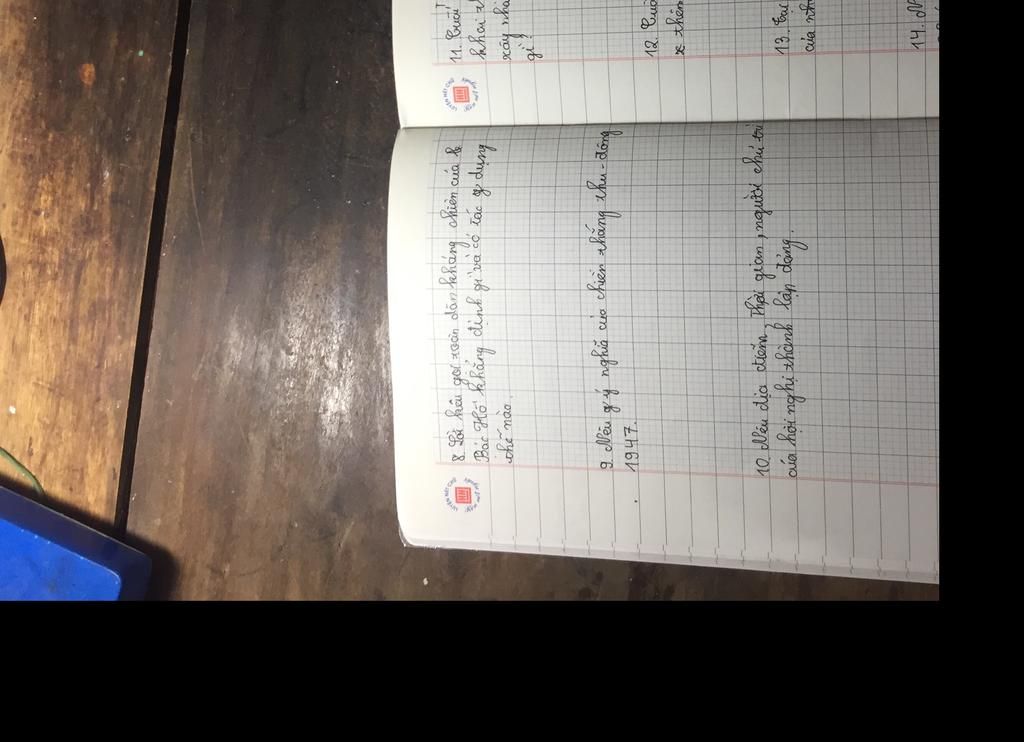 8. Lời kêu gọi toàn dân kháng chiến của b
Bác Hồ khẳng định gì và có tác dụng
thế nào.
9. Nêu ý nghĩa của chiến thắng thu - đông
1947.
10. Nêu địa điểm, thời gian, người chủ trì
của hội nghị thành lập đảng.
11. Cuối
khai th
xây nhà
gì?
12. Cuố
x thêm
13.
của nh
14. N